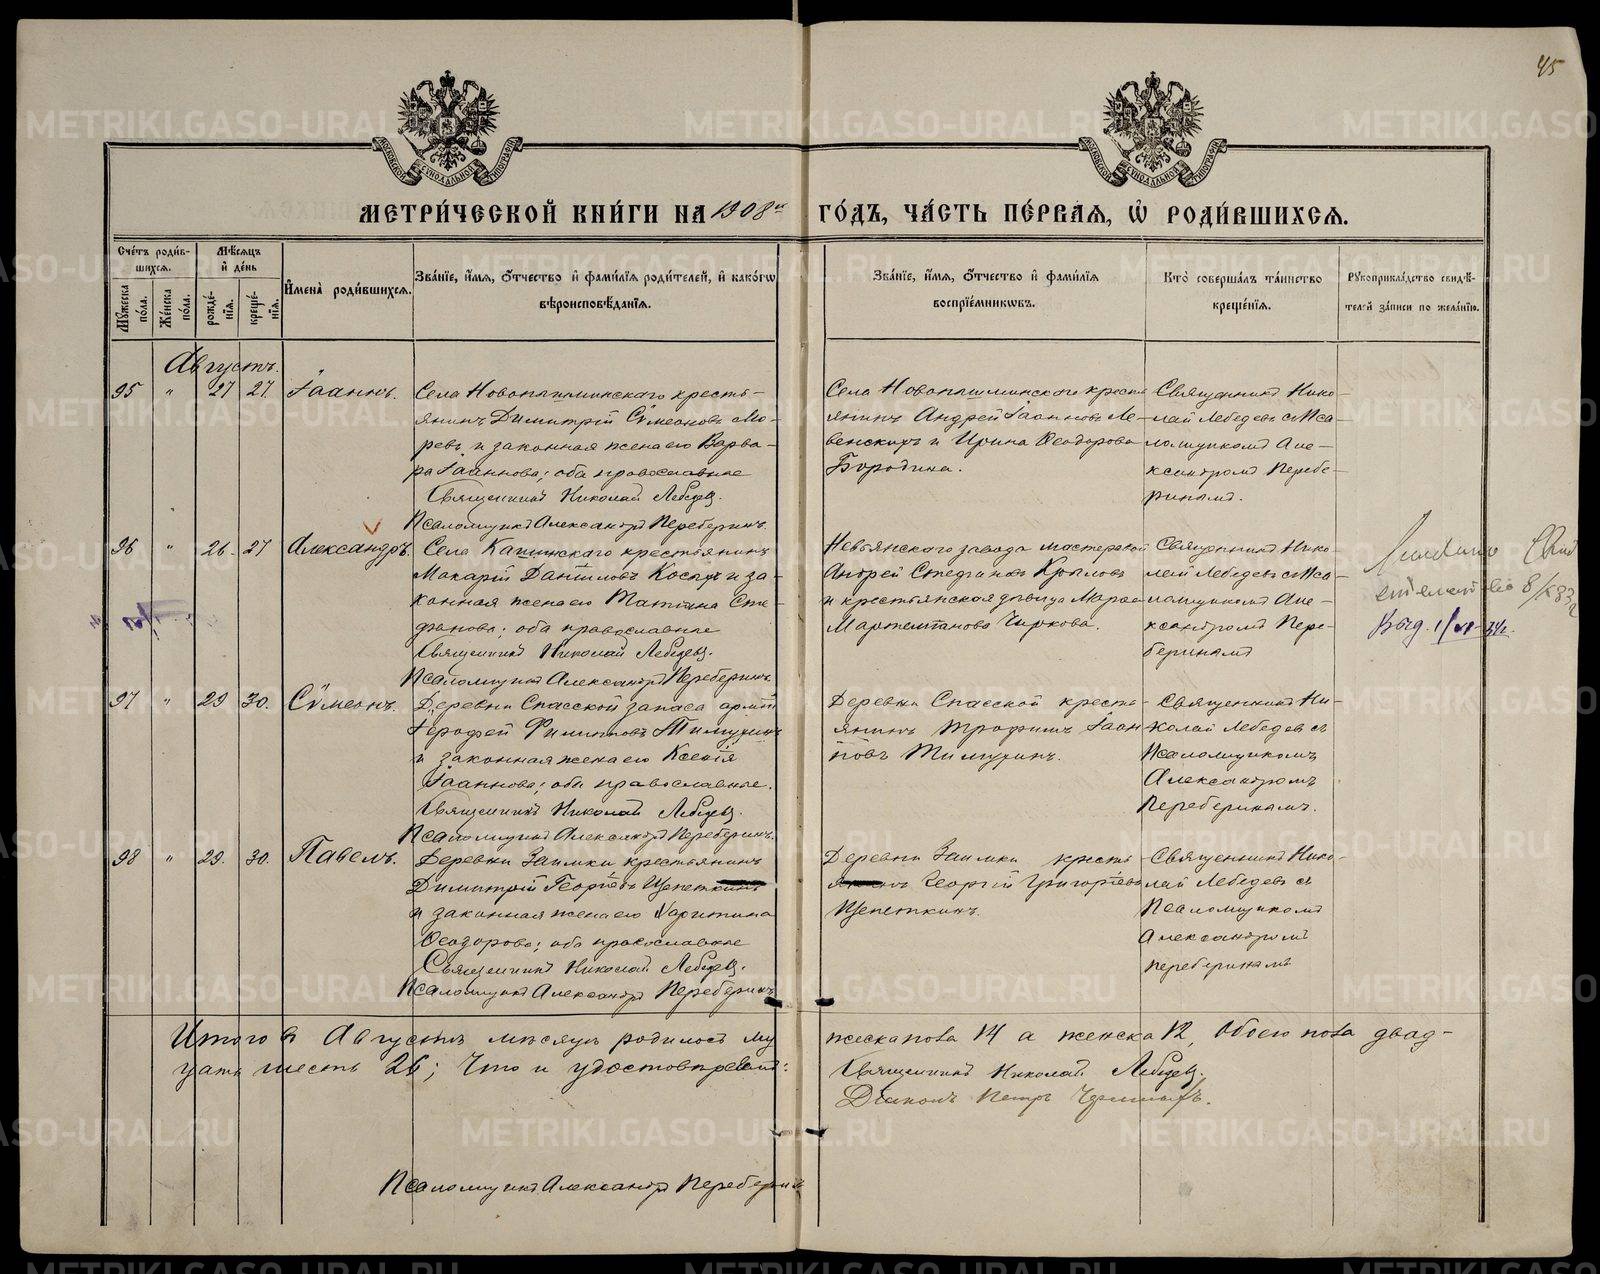 45
МОСКОВСКОЙ СУНОДАЛЬНОЙ ТИПОГРАФІИ
МОСКОВСКОЙ СУНОДАЛЬНОЙ ТИПОГРАФІИ
МЕТРИ́ЧЕСКОЙ КНИ́ГИ НА 1908й ГО́ДЪ, ЧА́СТЬ ПЕ́РВАЯ, Ѡ҆ РОДИ́ВШИХСЯ.
Сче́тъ роди́в-
шихся.
Мѣ́сяцъ
и҆ де́нь
Мꙋ́жеска по́ла.
Же́нска по́ла.
рожде́-
нїя.
креще́-
нїя.
И҆мена̀ роди́вшихся.
Зва́нїе, и҆́мя, ѻ҆́тчество и҆ фами́лїя роди́телей, и҆ како́гѡ
вѣроисповѣ́данїя.
Зва́нїе, и҆́мя, ѻ҆́тчество и҆ фами́лїя
воспрїе́мниковъ.
Кто̀ соверша́лъ та́инство
креще́нїя.
Рꙋкоприкла́дство свидѣ́-
телей за́писи по жела́нїю.
Августъ.
95 " 27 27. Іоаннъ.
Села Новопышминскаго кресть-
янинъ Димитрій Сѵмеоновъ Мо-
ревъ и законная жена его Варва-
ра Іоаннова; оба православные
Священникъ Николай Лебедевъ.
Псаломщикъ Александръ Переберинъ.
Села Новопышминскаго кресть
янинъ Андрей Іоанновъ Ле-
венскихъ и Ирина Ѳеодорова
Бородина.
Священникъ Нико-
лай Лебедевъ съ Пса-
ломщикомъ Але-
ксандромъ Перебе-
ринымъ.
96 " 26. 27 Александръ.
Села Кашинскаго крестьянинъ
Макарій Даніиловъ Косыхъ и за-
конная жена его Татіана Сте-
фанова; оба православные
Священникъ Николай Лебедевъ.
Псаломщикъ Александръ Переберинъ.
Невьянскаго завода мастеровой
Андрей Стефановъ Крыловъ
и крестьянская дѣвица Марѳа
Чиркова.
Священникъ Нико-
лай Лебедевъ съ Пса-
ломщикомъ Але-
ксандромъ Пере-
беринымъ
8/X 83
Выд. 1/VI-34г.
97 " 29 30. Сѵмеонъ.
Деревни Спасской запаса арміи
Іероѳей Филипповъ Тимухинъ
и законная жена его Ксенія
Іоаннова; оба православные.
Священникъ Николай Лебедевъ.
Псаломщикъ Александръ Переберинъ.
Деревни Спасской кресть-
янинъ Трофимъ Іоан
новъ Тимухинъ.
Священникъ Ни-
колай Лебедевъ съ
Псаломщикомъ
Александромъ
Переберинымъ.
98 " 29. 30. Павелъ.
Деревни Заимки крестьянинъ
Димитрій Георгіевъ Щепеткинъ
и законная жена его Харитина
Ѳеодорова; оба православные
Священникъ Николай Лебедевъ.
Псаломщикъ Александръ Переберинъ
Деревни Заимки кресть
янинъ Георгій Григорьевъ
Щепеткинъ.
Священникъ Нико-
лай Лебедевъ съ
Псаломщикомъ
Александромъ
Переберинымъ
Итого въ Августѣ мѣсяцѣ родилось му жеска пола 14 а женска 12, обоего пола двад-
цать шесть 26; Что и удостовѣряемъ:
Священникъ Николай Лебедевъ.
Діаконъ Петръ
Псаломщикъ Александръ Переберинъ
METRIKI.GASO-URAL.RU